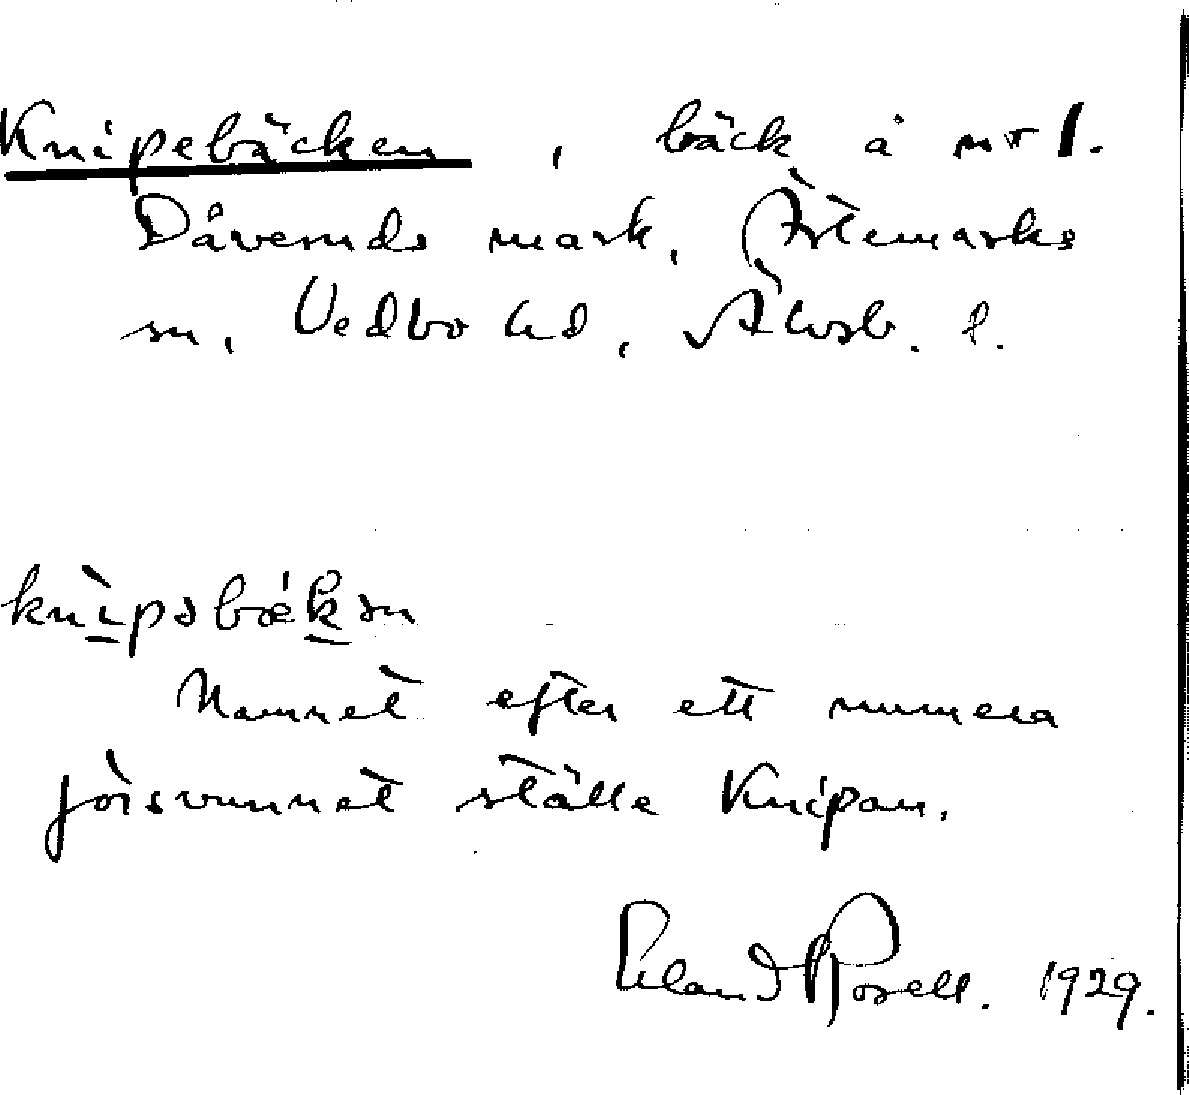 Knipebäcken, bäck å nr 1.
Dåveruds mark, Ärtemarks
sn, Vedbo hd, Älvsb. l.
knìpəbæ̀kən
Namnet efter ett numera
försvunnet ställe Knipan.
Erland Rosell. 1929.